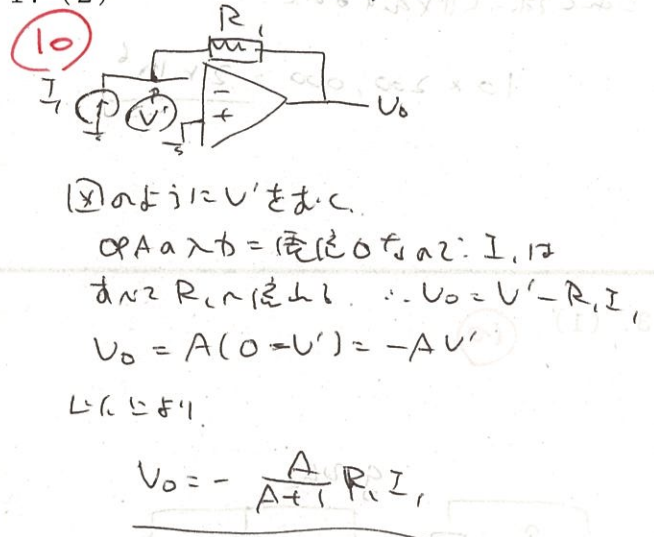 10
R₁
I₁
V'
-
+
V₀
図のようにV'をおく。
OPAの入力=電流0なので、I₁は
すべてR₁へ流れる ∴ V₀ = V' - R₁I₁
V₀ = A(0-V') = -AV'
V₀ = - A/(A+1) R₁I₁